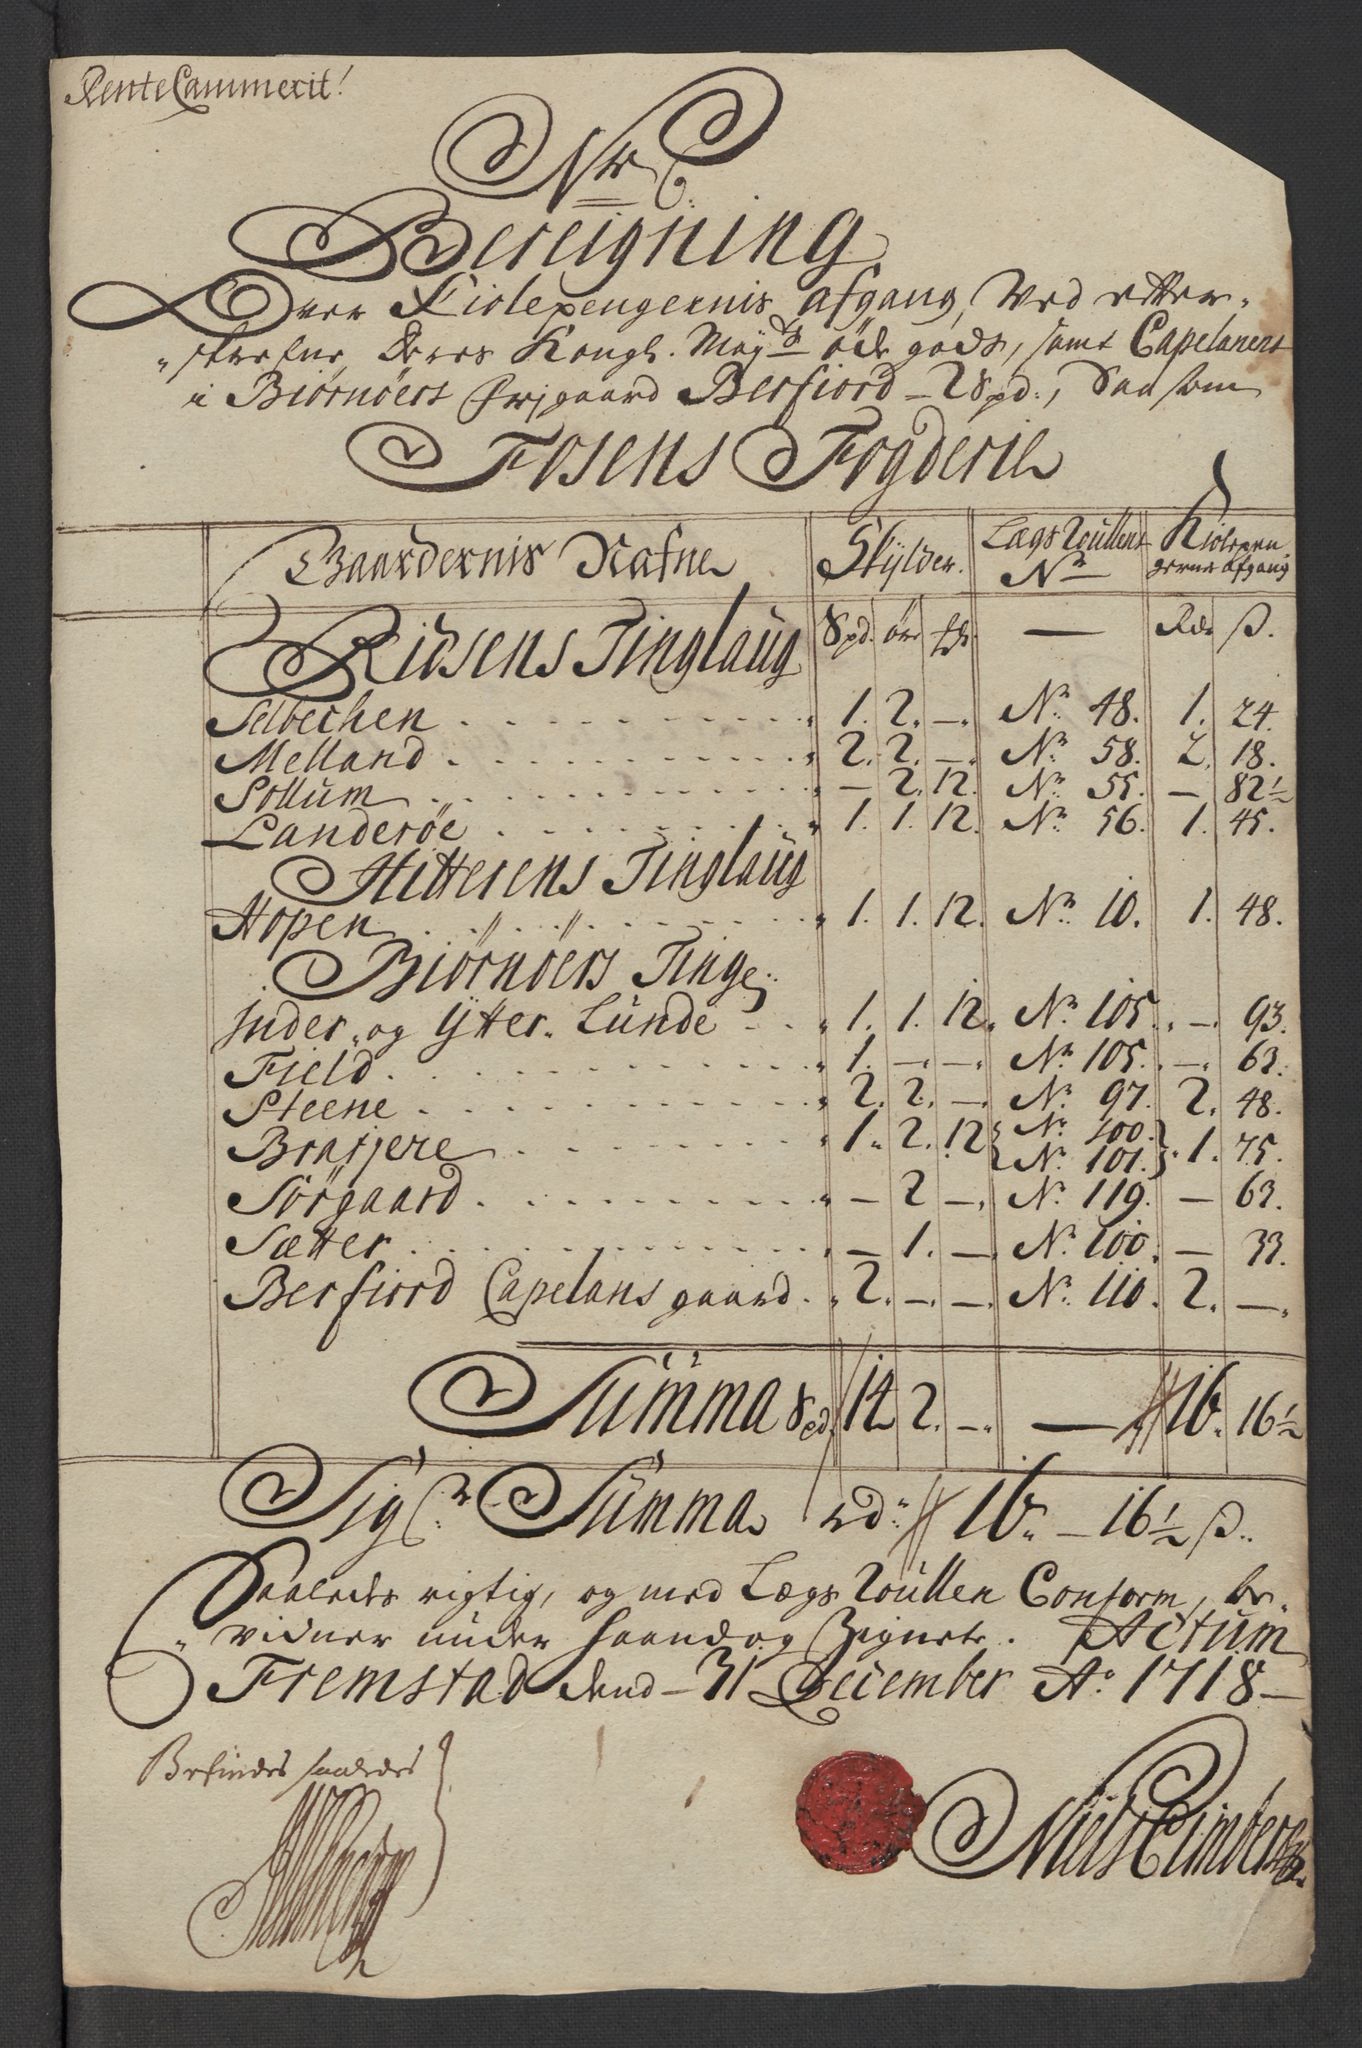 RenteCammerit!
Nr C:
Bereigning
Over Kiolepengernis afgang, Ved efter-
skrefne Deres Kongl. Mayts öde gods, samt Capelanens
i Biörnöers Præjgaard Berfiord - 2 Spd:, Saasom
Fosens Fogderie
Gaardernis Nafne Skylder. Lags Roullens Nr Kiolepen-
gernes afgang
Rissens Tinglaug Spd. öre — Rdr ß.
Selbechen 1. 2. —. Nr. 48. 1. 24.
Melland 2. 2. —. Nr. 58. 2. 18.
Sollum — 2. 12. Nr. 55. — 82½
Landeröe 1. 1. 12. Nr. 56. 1. 45.
Hitterens Tinglaug
Hopen 1. 1. 12. Nr. 10. 1. 48.
Biörnöers Tinge
Inder- og Ytter- Lunde 1. 1. 12. Nr. 105. —. 93.
Field 1. —. —. Nr. 105. —. 63.
Steene 2. 2. —. Nr. 97. 2. 48.
Brasjere 1. 2. 12 { Nr. 100. Nr. 101. } 1. 75.
Sörgaard — 2 —. Nr. 119. — 63.
Sætter — 1. —. Nr. 100. — 33.
Berfiord Capelans gaard. 2. —. —. Nr. 110. 2. —.
Summa Spd. 14 2. —. — 16. 16½
Sigr. Summa rdr 16. — 16½ ß.
Saaledes rigtig, og med Lægs Roullen Conform, be-
vidner under haand og Zignete. Actum
Fremstad dend - 31 December Ao 1718 —
Befindes saaledes
Niels Cimber